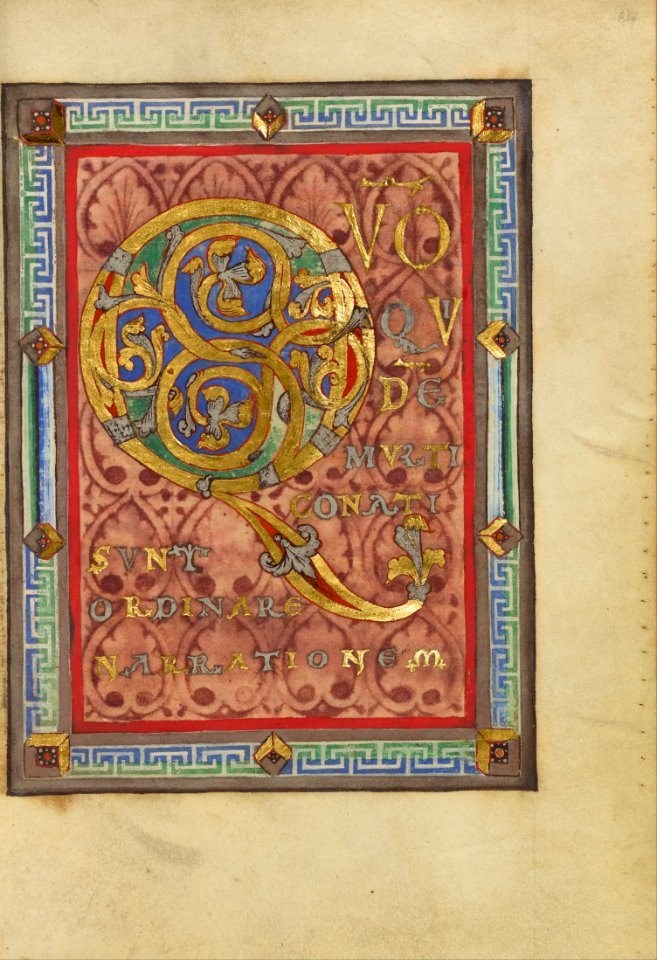 QVŌ
QVI
DĒ
MVLTI
CONATI
SVNT
ORDINARE
NARRATIONEM